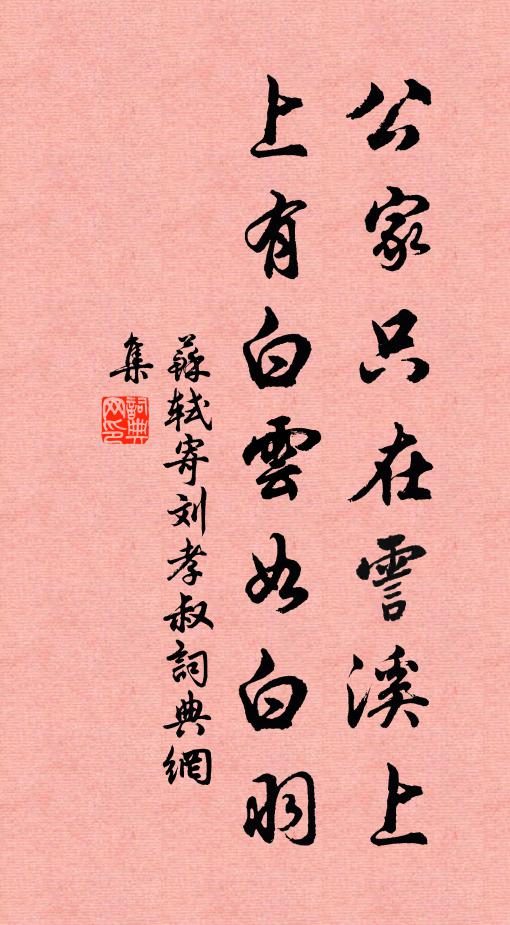 公家只在霅溪上
上有白雲如白羽
蘇軾寄刘孝叔詞典網
集
詞典网印